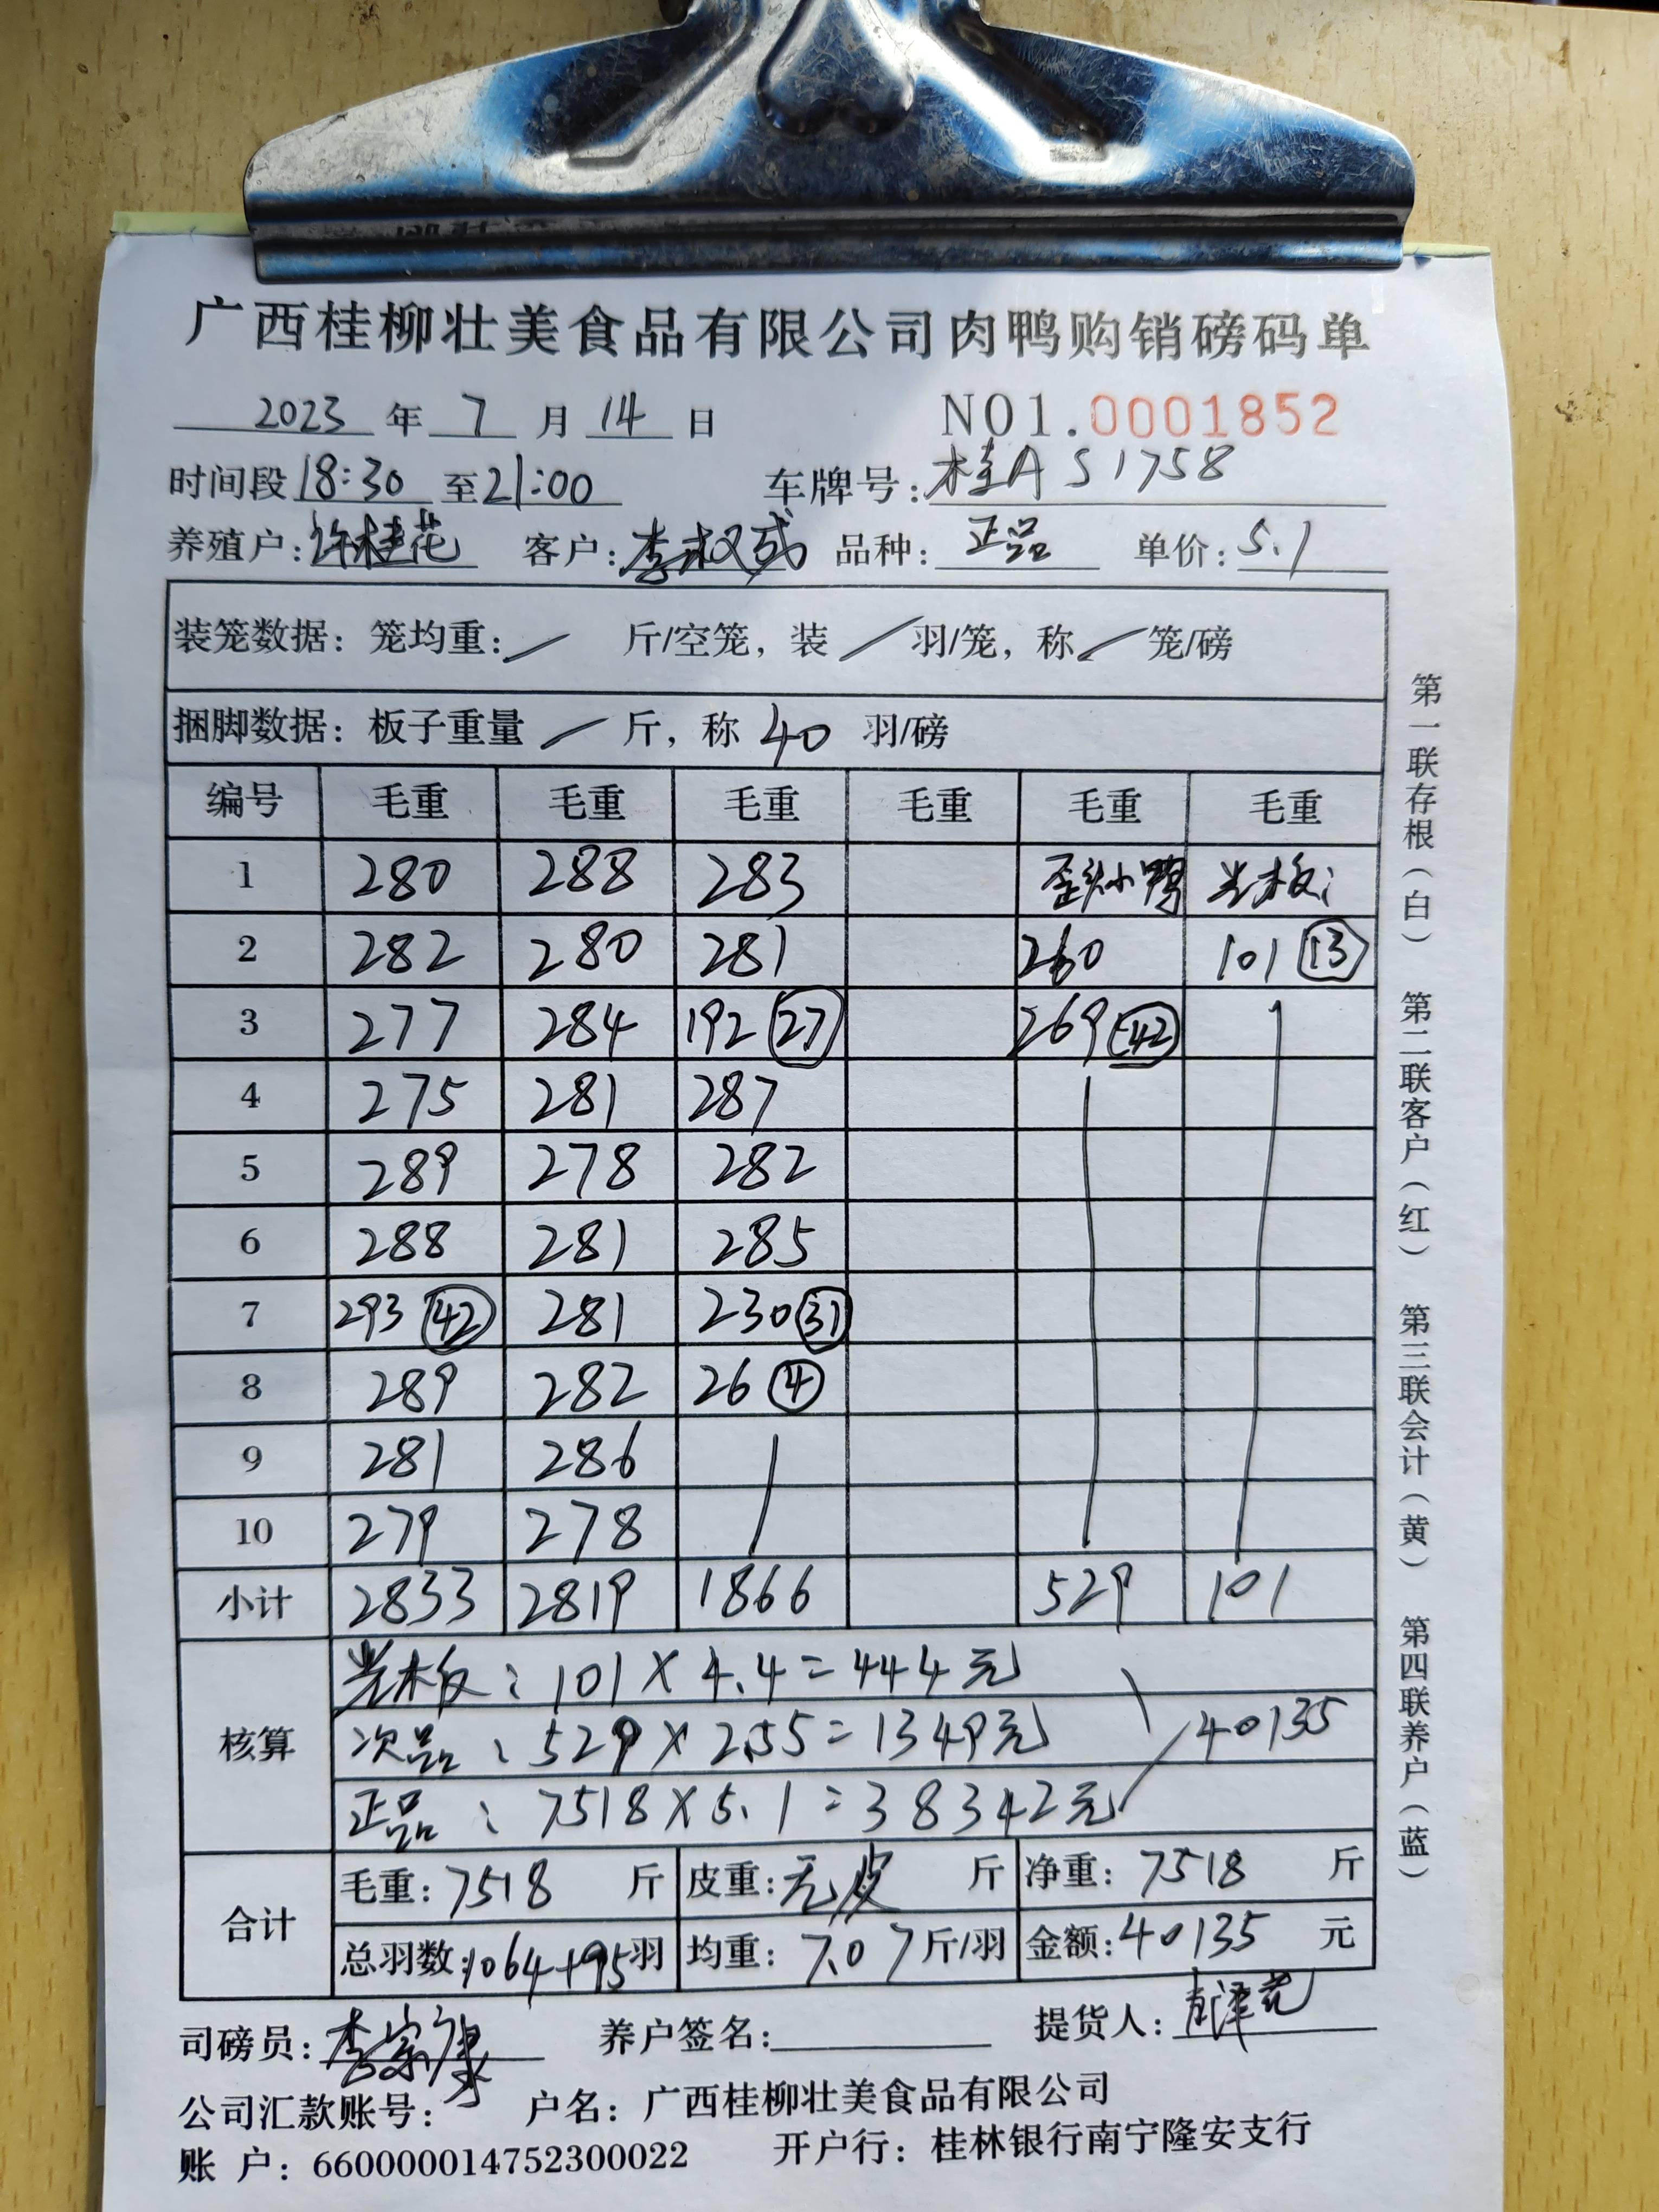 广西桂柳壮美食品有限公司肉鸭购销磅码单
2023 年 7 月 14 日 NO1.0001852
时间段 18:30 至 21:00 车牌号: 桂A S1758
养殖户: 许桂花 客户: 李权成 品种: 正品 单价: 5.1
装笼数据: 笼均重: / 斤/空笼, 装 / 羽/笼, 称 / 笼/磅
捆脚数据: 板子重量 / 斤, 称 40 羽/磅
编号 毛重 毛重 毛重 毛重 毛重 毛重
1 280 288 283 歪头小鸭 光板:
2 282 280 281 260 101 (13)
3 277 284 192 (27) 269 (42)
4 275 281 287
5 289 278 282
6 288 281 285
7 293 (42) 281 230 (31)
8 289 282 26 (4)
9 281 286
10 279 278
小计 2833 2819 1866 529 101
核算
光板: 101 × 4.4 = 444元
次品: 529 × 2.55 = 1349元 40135
正品: 7518 × 5.1 = 38342元
合计
毛重: 7518 斤 皮重: 无皮 斤 净重: 7518 斤
总羽数: 1064+95 羽 均重: 7.07 斤/羽 金额: 40135 元
司磅员: 李宗康 养户签名: 提货人:
公司汇款账号: 户名: 广西桂柳壮美食品有限公司
账 户: 660000014752300022 开户行: 桂林银行南宁隆安支行
第一联存根(白) 第二联客户(红) 第三联会计(黄) 第四联养户(蓝)